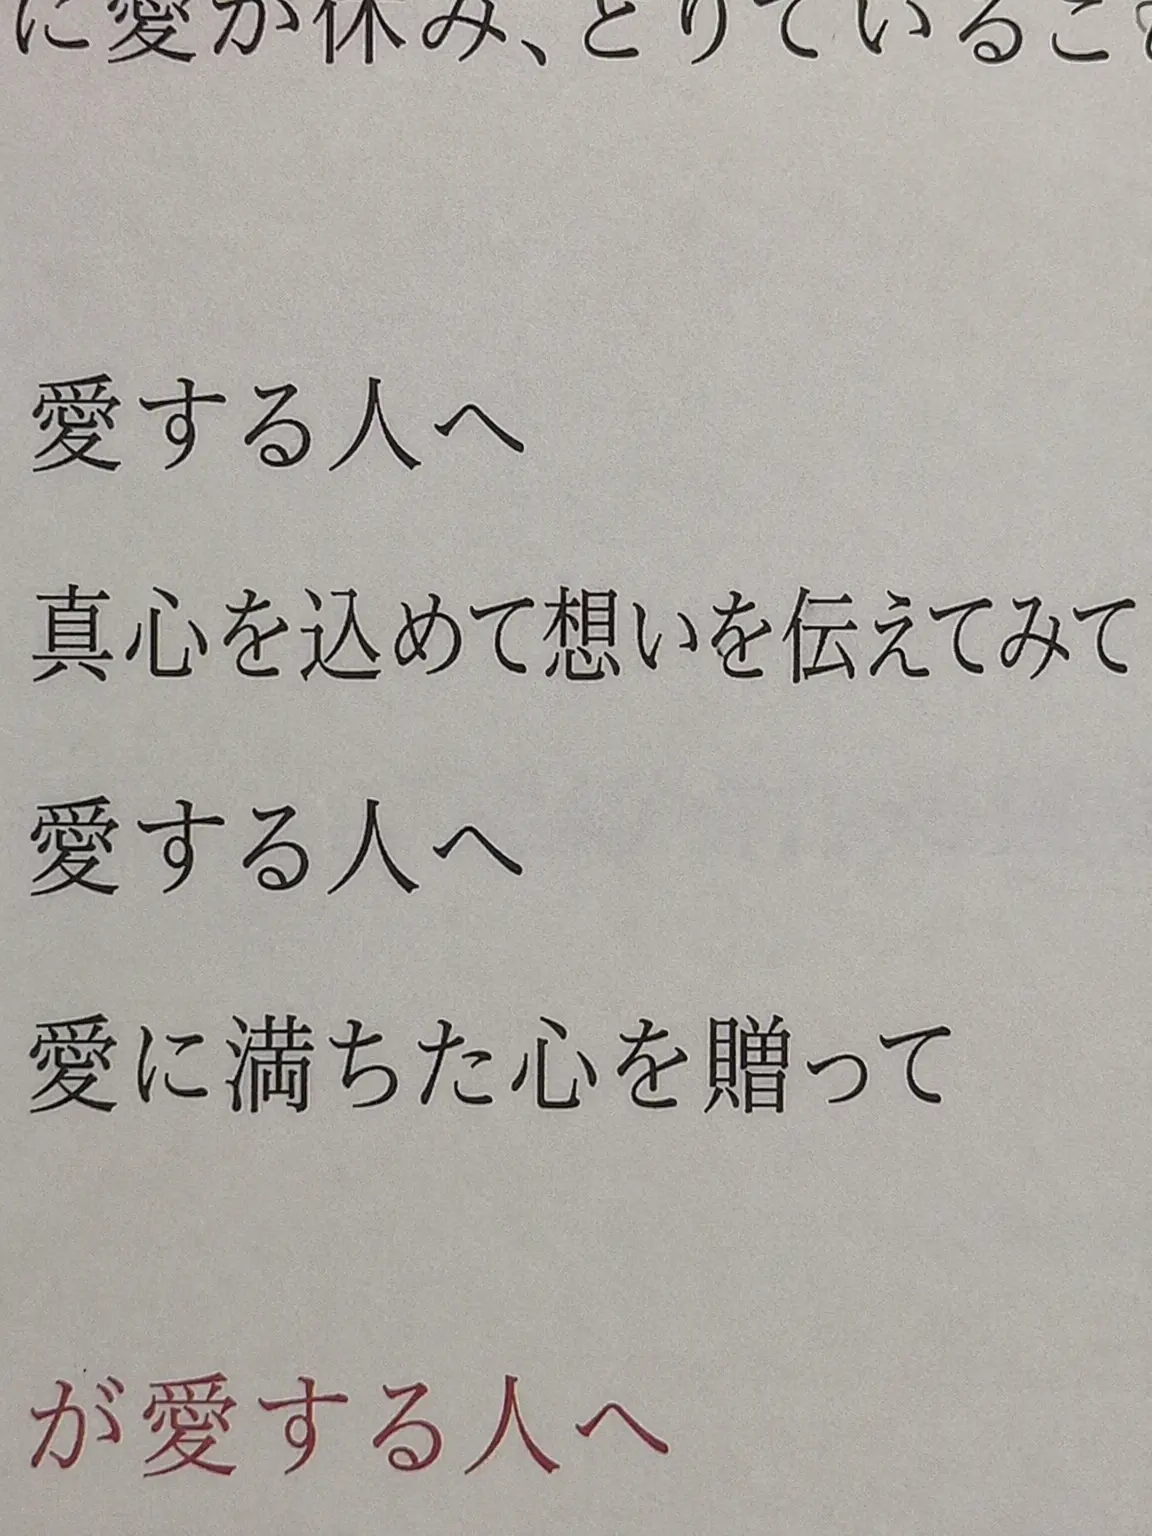 に愛が休み、とりているこ
愛する人へ
真心を込めて想いを伝えてみて
愛する人へ
愛に満ちた心を贈って
が愛する人へ